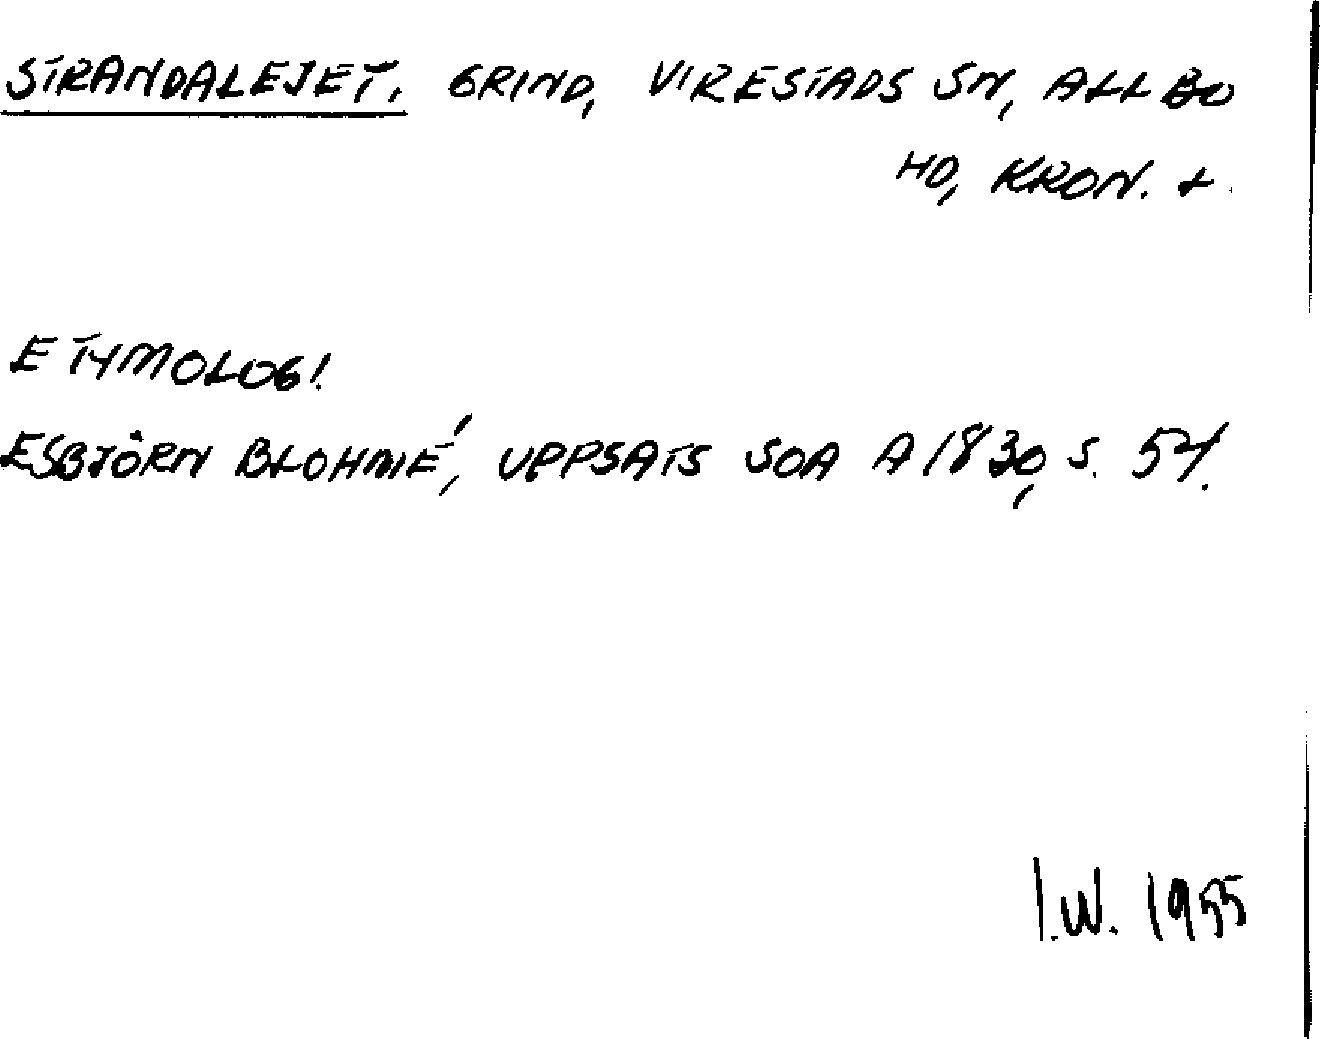 STRANDALEJET, GRIND, VIRESTADS SN, ALLBO
HD, KRON. L.
ETYMOLOGI.
ESBJÖRN BLOHMÉ, UPPSATS SOA A 1830, S. 54.
I.W. 1955